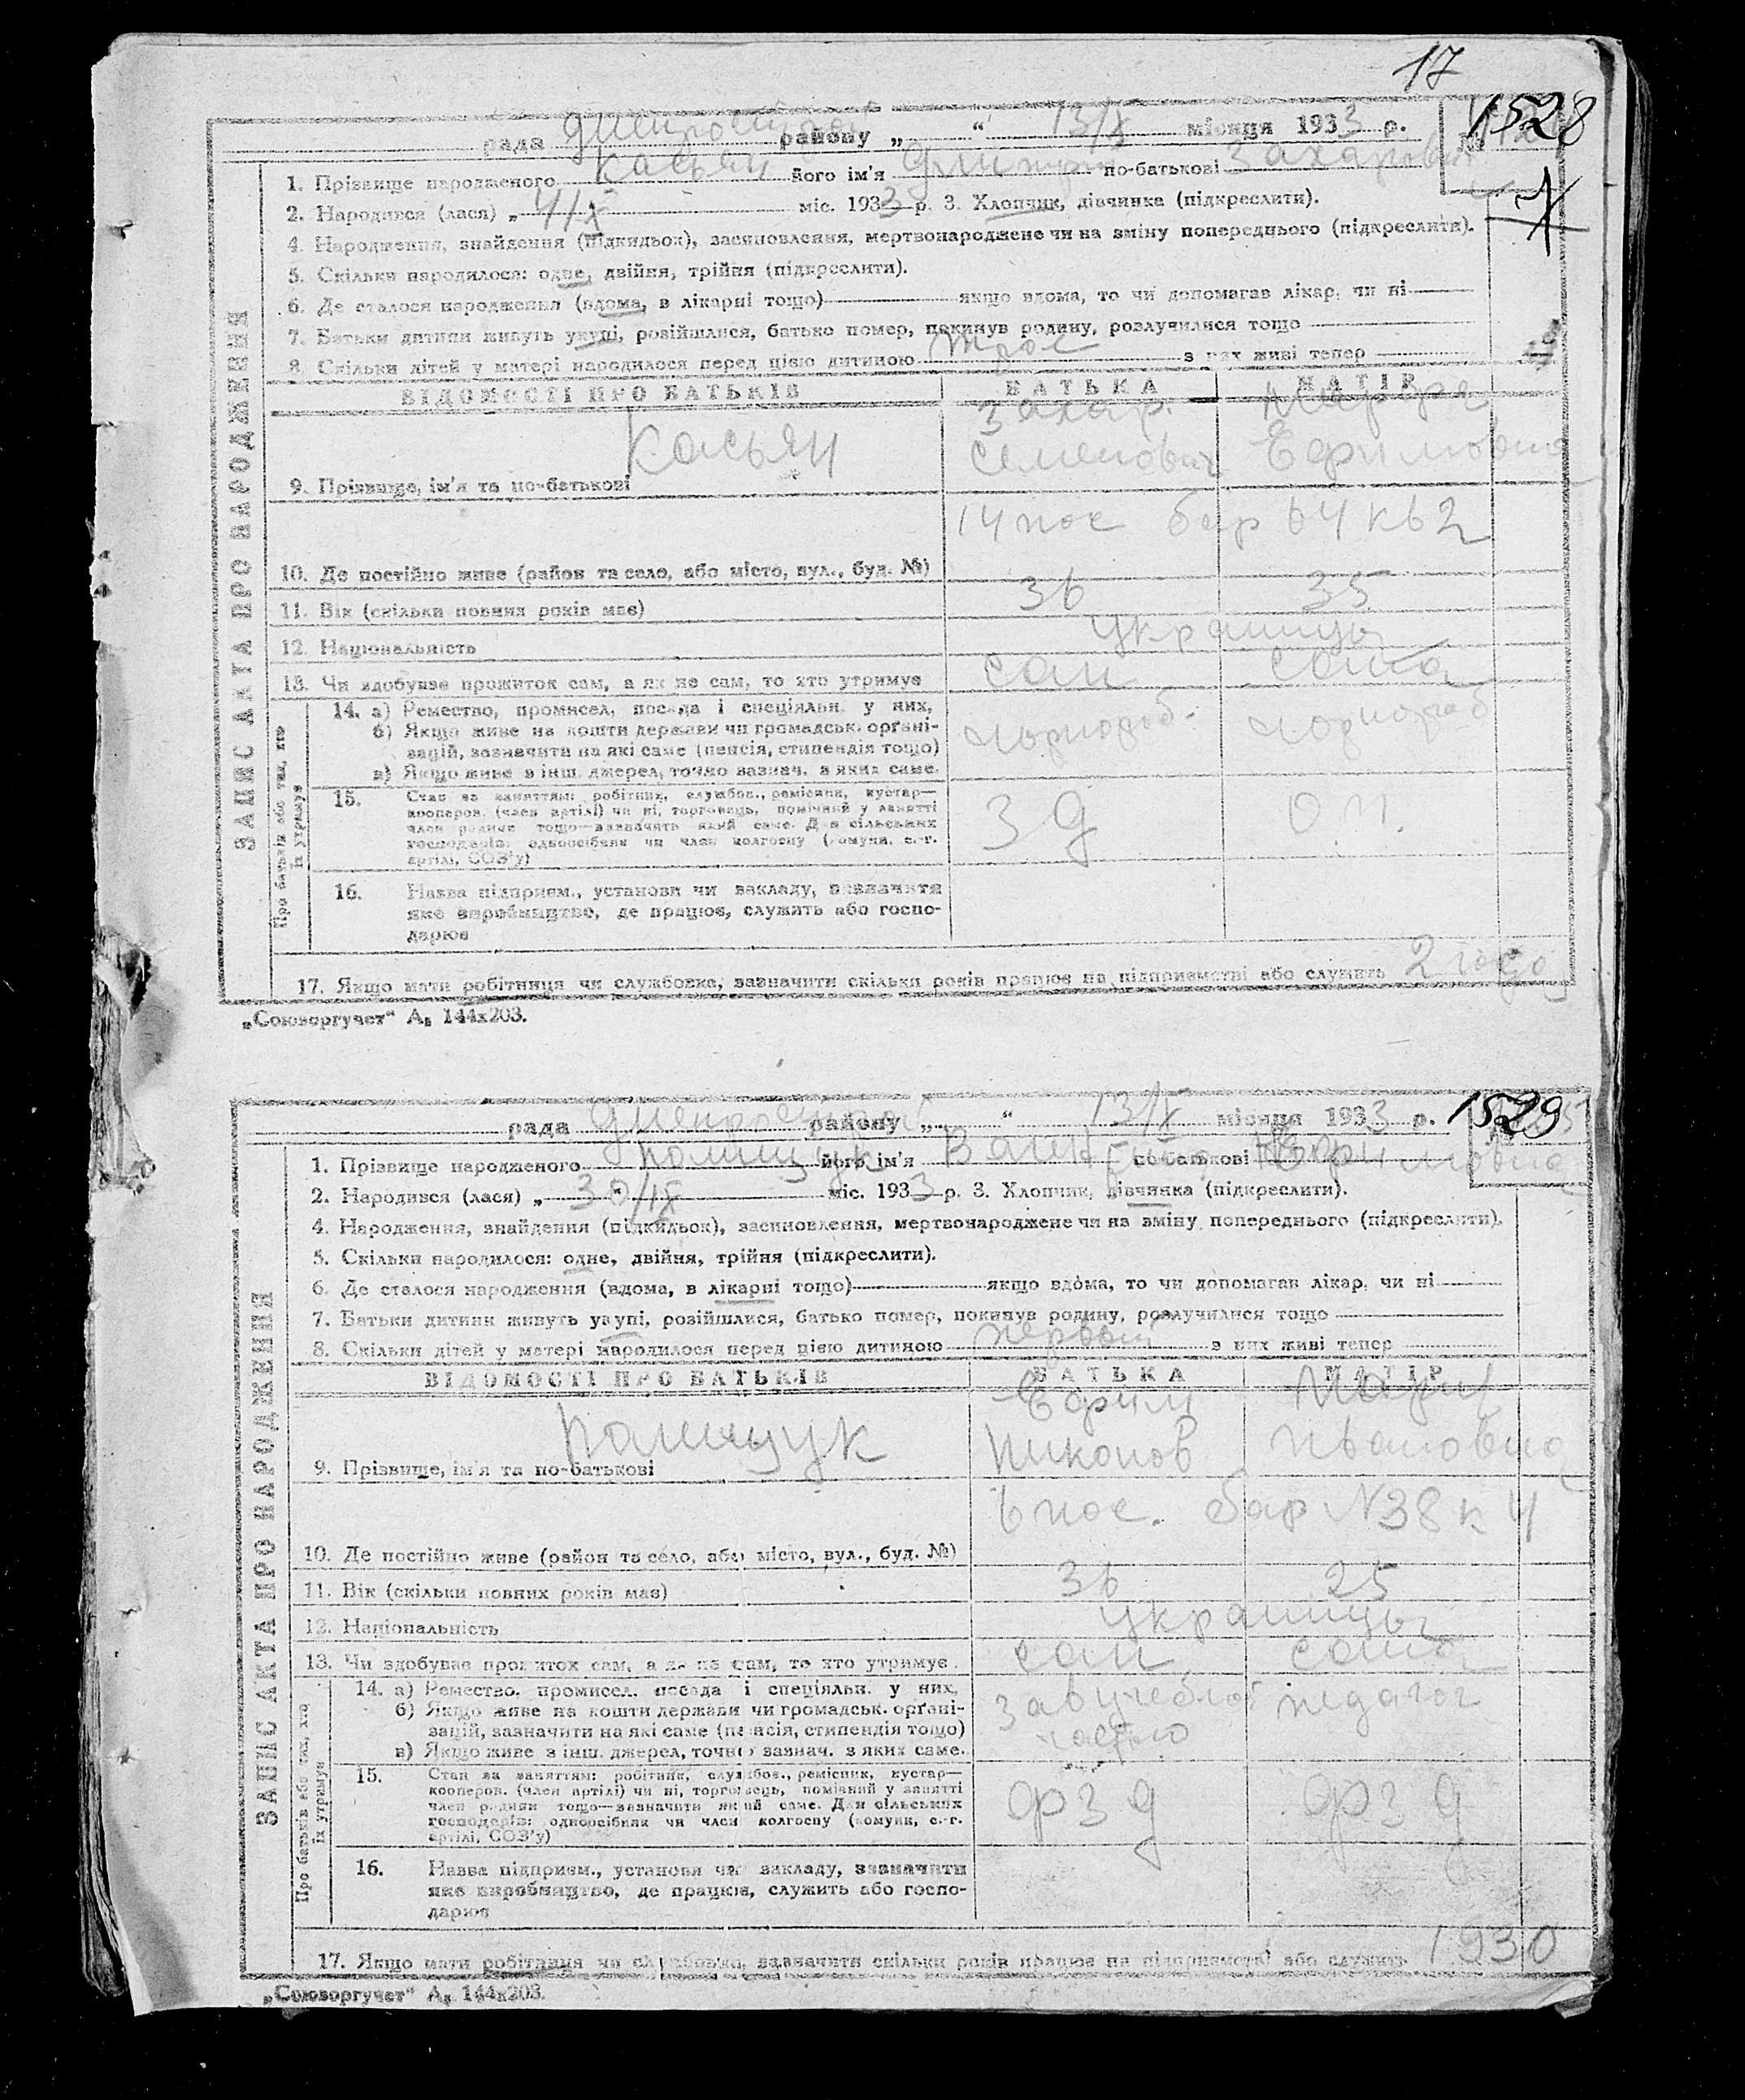 17
рада Днепрострой району „ “ 13/X місяця 1933 р. 1528
1. Прізвище народженого Касьян його ім'я Дмитрий по-батькові Захарович
2. Народився (лася) „ 4/X міс. 1933 р. 3. Хлопчик, дівчинка (підкреслити).
4. Народження, знайдення (підкидьок), засиновлення, мертвонароджене чи на зміну попереднього (підкреслити).
5. Скільки народилося: одне, двійня, трійня (підкреслити).
6. Де сталося народження (вдома, в лікарні тощо) якщо вдома, то чи допомагав лікар, чи ні
7. Батьки дитини живуть укупі, розійшлися, батько помер, покинув родину, розлучилися тощо
8. Скільки дітей у матері народилося перед цією дитиною трое з них живі тепер
ВІДОМОСТІ ПРО БАТЬКІВ БАТЬКА МАТІР
Касьян Захар Марфа
Семенович Ефимовна
9. Прізвище, ім'я та по-батькові
14 пос бар 64 кв 2
10. Де постійно живе (район та село, або місто, вул., буд. №)
11. Вік (скільки повних років має) 36 35
12. Національність украинцы
13. Чи здобуває прожиток сам, а як не сам, то хто утримує сам сама
14. а) Ремество, промисел, посада і спеціяльн. у них,
б) Якщо живе на кошти держави чи громадськ. органі-
зацій, зазначити на які саме (пенсія, стипендія тощо) чорнороб. чорнораб
в) Якщо живе з інш. джерел, точно зазнач. з яких саме.
15. Стан за заняттям: робітник, службов., ремісник, кустар—
кооперов. (член артілі) чи ні, торговець, помічний у занятті
член родини тощо—зазначить який саме. Для сільських 3 д о п.
господарів: одноосібник чи член колгоспу (комуни, с.-г.
артілі, СОЗ'у)
16. Назва підприєм., установи чи закладу, зазначити
яке виробництво, де працює, служить або госпо-
дарює
17. Якщо мати робітниця чи службовка, зазначити скільки років працює на підприємстві або служить 2 года
„Союзоргучет“ А₅ 144х203.
ЗАПИС АКТА ПРО НАРОДЖЕННЯ
Про батьків або тих, хто
їх утримує
рада Днепрострой району „ “ 13/X місяця 1933 р. 1529
1. Прізвище народженого Полищук його ім'я по-батькові Ефимовна
2. Народився (лася) „ 30/IX міс. 1933 р. 3. Хлопчик, дівчинка (підкреслити).
4. Народження, знайдення (підкидьок), засиновлення, мертвонароджене чи на зміну попереднього (підкреслити).
5. Скільки народилося: одне, двійня, трійня (підкреслити).
6. Де сталося народження (вдома, в лікарні тощо) якщо вдома, то чи допомагав лікар, чи ні
7. Батьки дитини живуть укупі, розійшлися, батько помер, покинув родину, розлучилися тощо
8. Скільки дітей у матері народилося перед цією дитиною первый з них живі тепер
ВІДОМОСТІ ПРО БАТЬКІВ БАТЬКА МАТІР
Полищук Ефим Мария
Никонов Ивановна
9. Прізвище, ім'я та по-батькові
6 пос. бар N38 к 4
10. Де постійно живе (район та село, або місто, вул., буд. №)
11. Вік (скільки повних років має) 36 25
12. Національність украинцы
13. Чи здобуває прожиток сам, а як не сам, то хто утримує сам сама
14. а) Ремество, промисел, посада і спеціяльн. у них, Зав учебной педагог
б) Якщо живе на кошти держави чи громадськ. органі-
зацій, зазначити на які саме (пенсія, стипендія тощо) частью
в) Якщо живе з інш. джерел, точно зазнач. з яких саме.
15. Стан за заняттям: робітник, службов., ремісник, кустар—
кооперов. (член артілі) чи ні, торговець, помічний у занятті
член родини тощо—зазначити який саме. Для сільських фзд фзд
господарів: одноосібник чи член колгоспу (комуни, с.-г.
артілі, СОЗ'у)
16. Назва підприєм., установи чи закладу, зазначити
яке виробництво, де працює, служить або госпо-
дарює
17. Якщо мати робітниця чи службовка, зазначити скільки років працює на підприємстві або служить 1930
„Союзоргучет“ А₅ 144х203.
ЗАПИС АКТА ПРО НАРОДЖЕННЯ
Про батьків або тих, хто
їх утримує